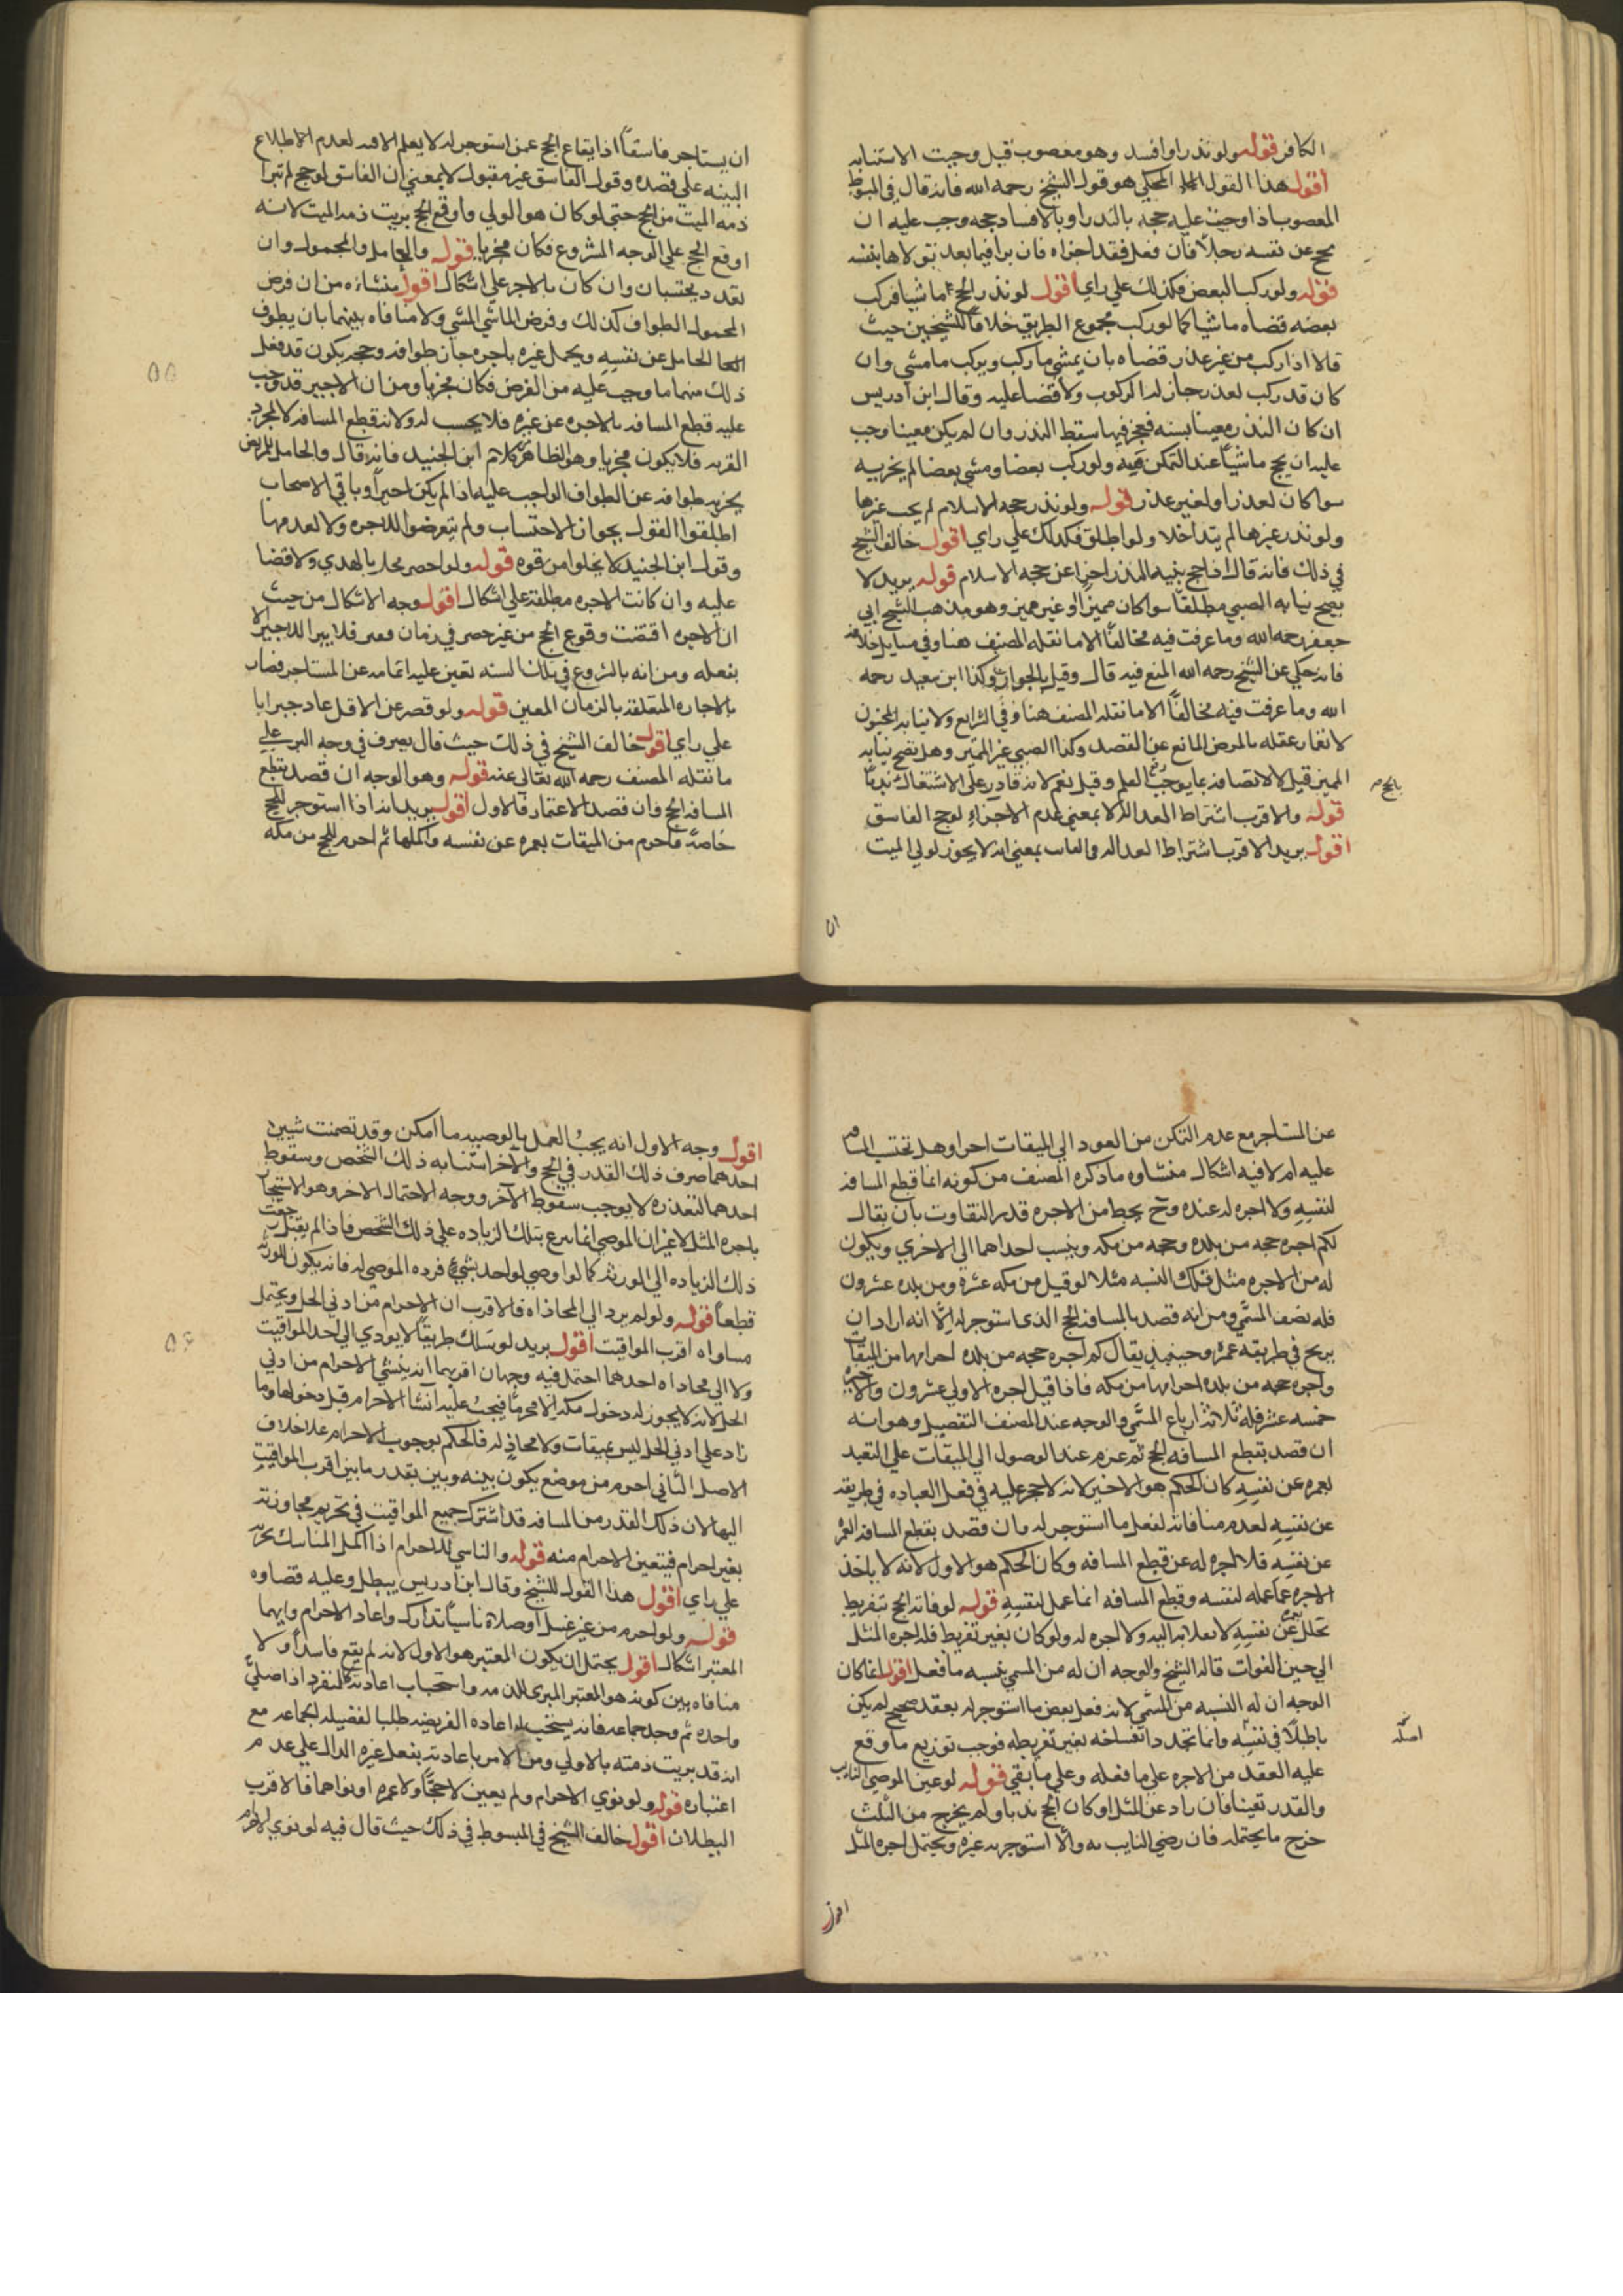 الكافر قوله ولو نذر او افسد وهو معضوب قيل وجبت الاستنابه
اقول هذا القول المحكي هو قول الشيخ رحمه الله فانه قال في المبسوط
المعضوب اذا وجبت عليه حجه بالنذر او بالافساد حجه وجب عليه ان
يحج عن نفسه رجلا فان فعل فقد اجزاه فان برا فيما بعد تولاها بنفسه
قوله ولو ركب البعض فكذلك علي راي اقول لو نذر الحج ماشيا فركب
بعضه قضاه ماشيا كما لو ركب مجموع الطريق خلافا للشيخين حيث
قالا اذا ركب من غير عذر قضاه بان يمشي ما ركب ويركب ما مشي وان
كان قد ركب لعذر جاز له الركوب ولا قضا عليه وقال ابن ادريس
ان كان النذر معينا بسنه فعجز فيها سقط النذر وان لم يكن معينا وجب
عليه ان يحج ماشيا عند التمكن فيه ولو ركب بعضا ومشي بعضا لم يجزيه
سوا كان لعذر او لغير عذر قوله ولو نذر حجه الاسلام لم يجب غيرها
ولو نذر غيرها لم يتداخلا ولو اطلق فكذلك علي راي اقول خالف الشيخ
في ذلك فانه قال اذا حج بنيه النذر اجزا عن حجه الاسلام قوله يريد لا
يصح نيابه الصبي مطلقا سوا كان مميزا او غير مميز وهو مذهب الشيخ ابي
جعفر رحمه الله وما عرفت فيه مخالفا الا ما نقله المصنف هنا وفي مسايل خلافه
فانه حكي عن الشيخ رحمه الله المنع فيه قال وقيل بالجواز وكذا ابن سعيد رحمه
الله وما عرفت فيه مخالفا الا ما نقله المصنف هنا وفي الشرايع ولا نيابه المجنون
لانغمار عقله بالمرض المانع عن القصد وكذا الصبي غير المميز وهل تصح نيابه
المميز قيل لا لاتصافه بما يوجب رفع العلم وقيل نعم لانه قادر علي الاشتغال ندبا
بالحج م
قوله والاقرب اشتراط العداله لا بمعني عدم الاجزاء لو حج الفاسق
اقول يريد الاقرب اشتراط العداله في النايب بمعني انه لا يجوز لولي الميت
ان
ان يستاجر فاسقا اذ ايقاع الحج عمن استوجر له لا يعلم الا منه لعدم الاطلاع
البينه علي قصده وقول الفاسق غير مقبول لا بمعني ان الفاسق لو حج لم تبرا
ذمه الميت من الحج حتي لو كان هو الولي واوقع الحج بريت ذمه الميت لانه
اوقع الحج علي الوجه المشروع فكان مجزيا قوله والحامل والمحمول وان
تعدد يحتسبان وان كان بالاجر علي اشكال اقول منشاءه من ان فرض
المحمول الطواف كذلك وفرض الماشي المشي ولا منافاه بينهما بان يطوف
الحامل عن نفسه ويحمل غيره باجره جاز طوافه وحجه يكون قد فعل
ذلك منهما ما وجب عليه من الفرض فكان مجزيا ومن ان الاجير قد وجب
عليه قطع المسافه بالاجره عن غيره فلا يحسب له ولانه قطع المسافه لا لمجرد
القربه فلا يكون مجزيا وهو الظاهر من كلام ابن الجنيد فانه قال والحامل للمريض
يجزيه طوافه عن الطواف الواجب عليه اذا لم يكن اجيرا وباقي الاصحاب
اطلقوا القول بجواز الاحتساب ولم يتعرضوا للاجره ولا لعدمها
وقول ابن الجنيد لا يخلوا من قوه قوله ولو احصر تحلل بالهدي ولا قضا
عليه وان كانت الاجره مطلقة علي اشكال اقول وجه الاشكال من حيث
ان الاجره اقتضت وقوع الحج من غير حصر في زمان معين فلا يبرا الاجير الا
بفعله ومن انه بالشروع في تلك السنه تعين عليه اتمامه عن المستاجر فصار
بالاجاره المتعلقه بالزمان المعين قوله ولو قصر عن الاقل عاد جبرايا
علي راي اقول خالف الشيخ في ذلك حيث قال يصرف في وجه البر علي
ما نقله المصنف رحمه الله تعالي عنه قوله وهو الوجه ان قصد بقطع
المسافه الحج وان قصد الاعتمار فالاول اقول يريد انه اذا استوجر للحج
خاصة فاحرم من الميقات بعمره عن نفسه واكملها ثم احرم للحج من مكه
٥٥
عن المستاجر مع عدم التمكن من العود الي الميقات اجزا وهل تحتسب المسافه
عليه ام لا فيه اشكال منشاوه ما ذكره المصنف من كونه انما قطع المسافه
لنفسه ولا اجره له عنده وح يحط من الاجره قدر التفاوت بان يقال
لكم اجره حجه من بلده وحجه من مكه وينسب احداهما الي الاخري ويكون
له من الاجره مثل تلك النسبه مثلا لو قيل من مكه عشره ومن بلده عشرون
فله نصف المسمي ومن انه قصد بالمسافه الحج الذي استوجر له الا انه اراد ان
يربح في طريقه عمره وحينيذ يقال كم اجره حجه من بلده احرامها من الميقات
واجره حجه من بلده احرامها من مكه فاذا قيل اجره الاولي عشرون والاخيره
خمسه عشر فله ثلاثه ارباع المسمي والوجه عند المصنف التفصيل وهو انه
ان قصد بقطع المسافه الحج ثم عزم عند الوصول الي الميقات علي التعبد
بعمره عن نفسه كان الحكم هو الاخير لانه لا حجر عليه في فعل العباده في طريقه
عن نفسه لعدم منافاته لفعل ما استوجر له وان قصد بقطع المسافه العمره
عن نفسه فلا اجره له عن قطع المسافه وكان الحكم هو الاول لانه لا ياخذ
الاجره عما عمله لنفسه وقطع المسافه انما عمل لنفسه قوله لو فاته الحج بتفريط
تحلل بعمره عن نفسه لانقلابه اليه ولا اجره له ولو كان بغير تفريط فله اجره المثل
الي حين الفوات قاله الشيخ والوجه ان له من المسمي بنسبه ما فعل اقول انما كان
الوجه ان له النسبه من المسمي لانه فعل بعض ما استوجر له بعقد صحيح لم يكن
باطلا في نفسه وانما تجدد انفساخه بغير تفريطه فوجب توزيع ما وقع
عليه العقد من الاجره علي ما فعله وعلي ما بقي قوله لو عين الموصي النايب
والقدر تعينا فان زاد عن المثل او كان الحج ندبا ولم يخرج من الثلث
خرج ما يحتمله فان رضي النايب به والا استوجر به غيره ويحتمل اجره المثل
اقول
اقول وجه الاول انه يجب العمل بالوصيه ما امكن وقد تضمنت شيين
احدهما صرف ذلك القدر في الحج والاخر استنابه ذلك الشخص وسقوط
احدهما لتعذره لا يوجب سقوط الآخر ووجه الاحتمال الاخر وهو الاستيجار
باجره المثل لا غير ان الموصي انما تبرع بتلك الزياده علي ذلك الشخص فاذا لم يقبل رجعت
ذلك الزياده الي الورثه كما لو اوصي لواحد بشيء فرده الموصي له فانه يكون للورثه
قطعا قوله ولو لم يرد الي المحاذاه فالاقرب ان الاحرام من ادني الحل ويحتمل
مساواه اقرب المواقيت اقول يريد لو سلك طريقا لا يودي الي احد المواقيت
ولا الي محاذاه احدهما احتمل فيه وجهان اقربهما انه ينشي الاحرام من ادني
الحل لانه لا يجوز له دخول مكه الا محرما فيجب عليه انشا الاحرام قبل دخولها وما
زاد علي ادني الحل ليس بميقات ولا محاذ له فالحكم بوجوب الاحرام علا خلاف
الاصل الثاني احرم من موضع يكون بينه وبين بقدر ما بين اقرب المواقيت
اليها لان ذلك القدر من المسافه قد اشترك جميع المواقيت في تحريم مجاوزته
بغير احرام فيتعين الاحرام منه قوله والناسي للاحرام اذا اكمل المناسك يجزيه
علي راي اقول هذا القول للشيخ وقال ابن ادريس يبطل وعليه قضاوه
قوله ولو احرم من غير غسل او صلاة ناسيا تدارك واعاد الاحرام وايهما
المعتبر اشكال اقول يحتمل ان يكون المعتبر هو الاول لانه لم يقع فاسدا ولا
منافاه بين كونه هو المعتبر المبري للذمه واستحباب اعادته كالمنفرد اذا صلي
واحده ثم وجد جماعه فانه يستحب له اعاده الفريضه طلبا لفضيله الجماعه مع
انه قد بريت ذمته بالاولي ومن الامر باعادته بفعل غيره الدال علي عدم
اعتباره قوله ولو نوي الاحرام ولم يعين لا حجا ولا عمره او نواهما فالاقرب
البطلان اقول خالف الشيخ في المبسوط في ذلك حيث قال فيه لو نوي الاحرام
٥٦